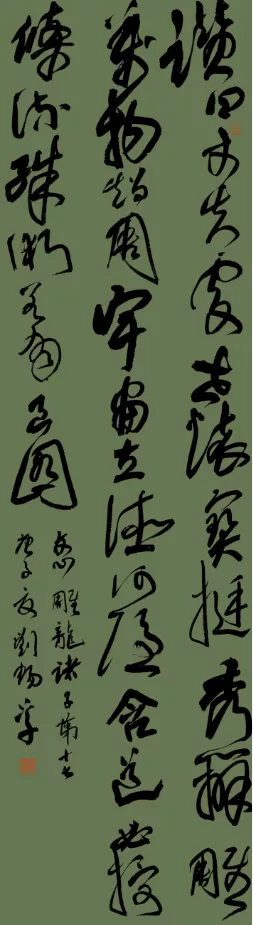 讚曰丈夫處世懷寶挺秀辯雕
萬物智周宇宙立德何隱含道必授
條流殊術若有區囿
文心雕龍諸子第十七
庚子夏劉